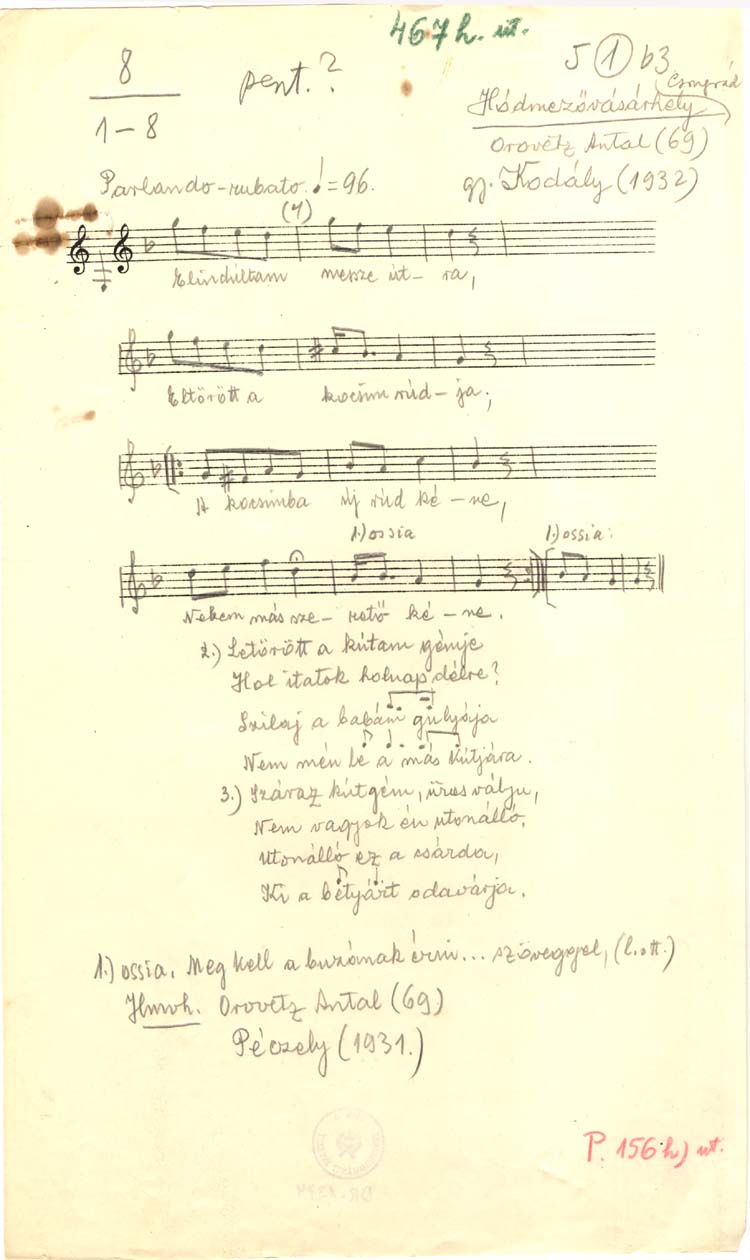 467 h. ut.
8
1-8
pent.?
5 ① b3
Csongrád
Hódmezővásárhely
Orovětz Antal (69)
gy. Kodály (1932)
Parlando-rubato ♩=96.
(7)
Elindúltam messze út- ra,
Eltörött a kocsim rúd- ja;
A kocsimba új rúd ké- ne,
1.) ossia
1.) ossia:
Nekem más sze- rető ké- ne.
2.) Letörött a kútam gémje
Hol itatok holnap délre?
Szilaj a babám gulyája
Nem mén be a más kútjára.
3.) Száraz kútgém, üres válju,
Nem vagyok én utonálló,
Utonálló ez a csárda,
Ki a bétyárt odavárja.
1.) ossia. Meg kell a buzának érni... szöveggel, (l. ott.)
Hmvh. Orovětz Antal (69)
Péczely (1931.)
P. 156 h) ut.